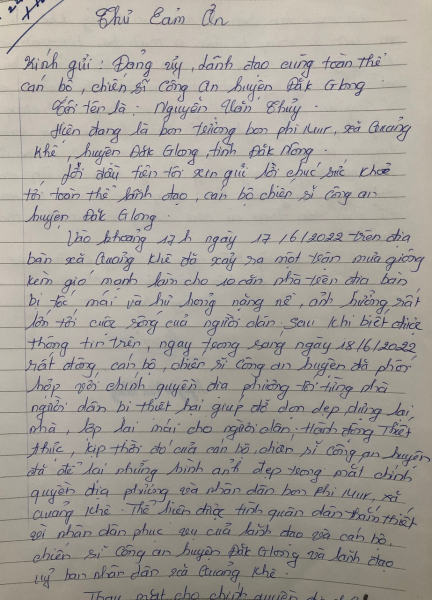 Thư Cảm Ơn
Kính gửi: Đảng ủy, lãnh đạo cùng toàn thể
cán bộ, chiến sĩ Công An huyện Đắk Glong
Tôi tên là: Nguyễn Văn Thủy.
Hiện đang là bon trưởng bon phi Mur, xã Quảng
Khê, huyện Đắk Glong, tỉnh Đắk Nông.
Lời đầu tiên tôi xin gửi lời chúc sức khoẻ
tới toàn thể lãnh đạo, cán bộ chiến sĩ Công an
huyện Đắk Glong.
Vào khoảng 17h ngày 17/6/2022 trên địa
bàn xã Quảng Khê đã xảy ra một trận mưa giông
kèm gió mạnh làm cho 10 căn nhà trên địa bàn
bị tốc mái và hư hỏng nặng nề, ảnh hưởng rất
lớn tới cuộc sống của người dân. Sau khi biết được
thông tin trên, ngay trong sáng ngày 18/6/2022
rất đông cán bộ, chiến sĩ Công an huyện đã phối
hợp với chính quyền địa phương tới từng nhà
người dân bị thiệt hại giúp đỡ dọn dẹp, dựng lại
nhà, lợp lại mái cho người dân. Hành động thiết
thực, kịp thời đó của cán bộ, chiến sĩ công an huyện
đã để lại những hình ảnh đẹp trong mắt chính
quyền địa phương và nhân dân bon Phi Mur, xã
Quảng Khê. Thể hiện được tình quân dân thắm thiết
vì nhân dân phục vụ của lãnh đạo và cán bộ,
chiến sĩ Công an huyện Đắk Glong và lãnh đạo
uỷ ban nhân dân xã Quảng Khê.
Thay mặt cho chính quyền